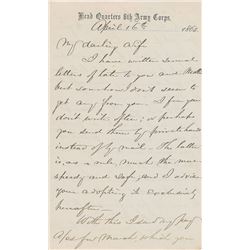 Head Quarters 8th Army Corps,
April 16th 186
My darling wife
I have written several
letters of late to you and Mother
but somehow I don't seem to
get any from you. I fear you
don't write often; or perhaps
you send them by private hands
instead of by mail. The latter
is, as a rule, much the more
speedy and safe, and I advise
your adopting it exclusively
hereafter.
With this I send my
a/cs for March, which you